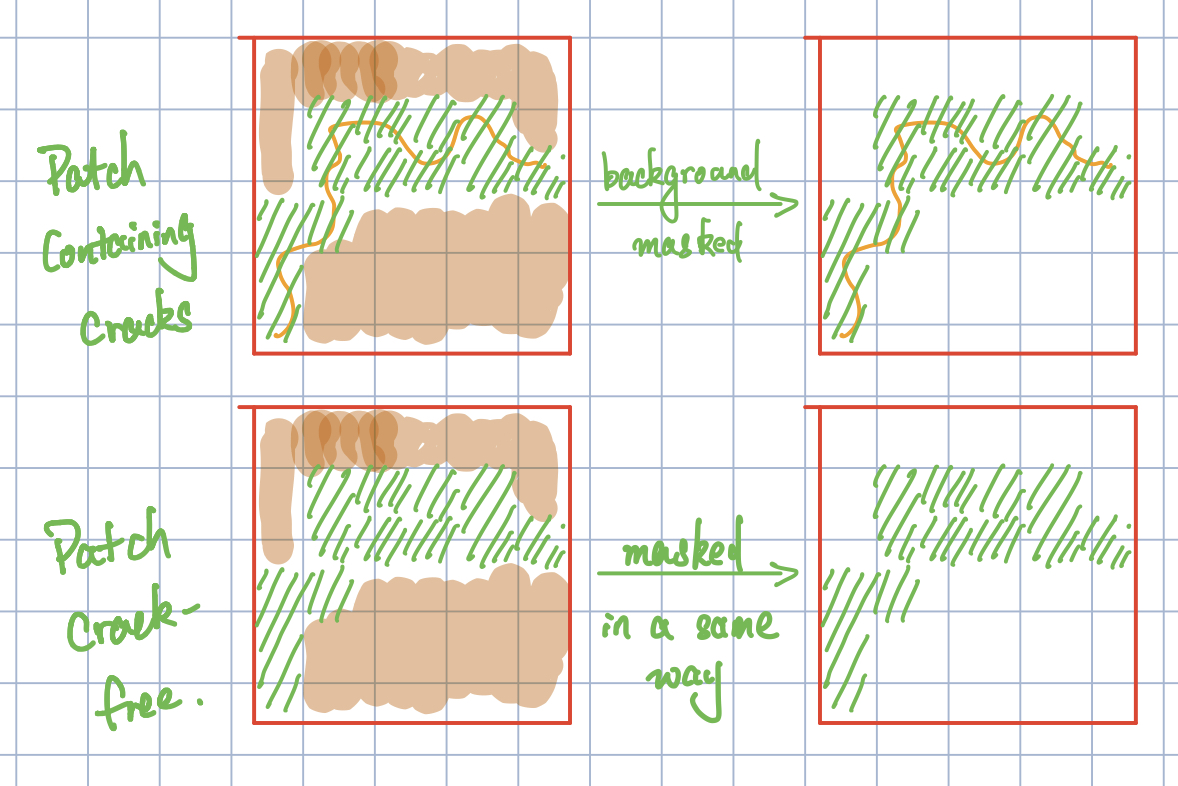 Patch
Containing
Cracks
background
masked
Patch
Crack-
free.
masked
in a same
way